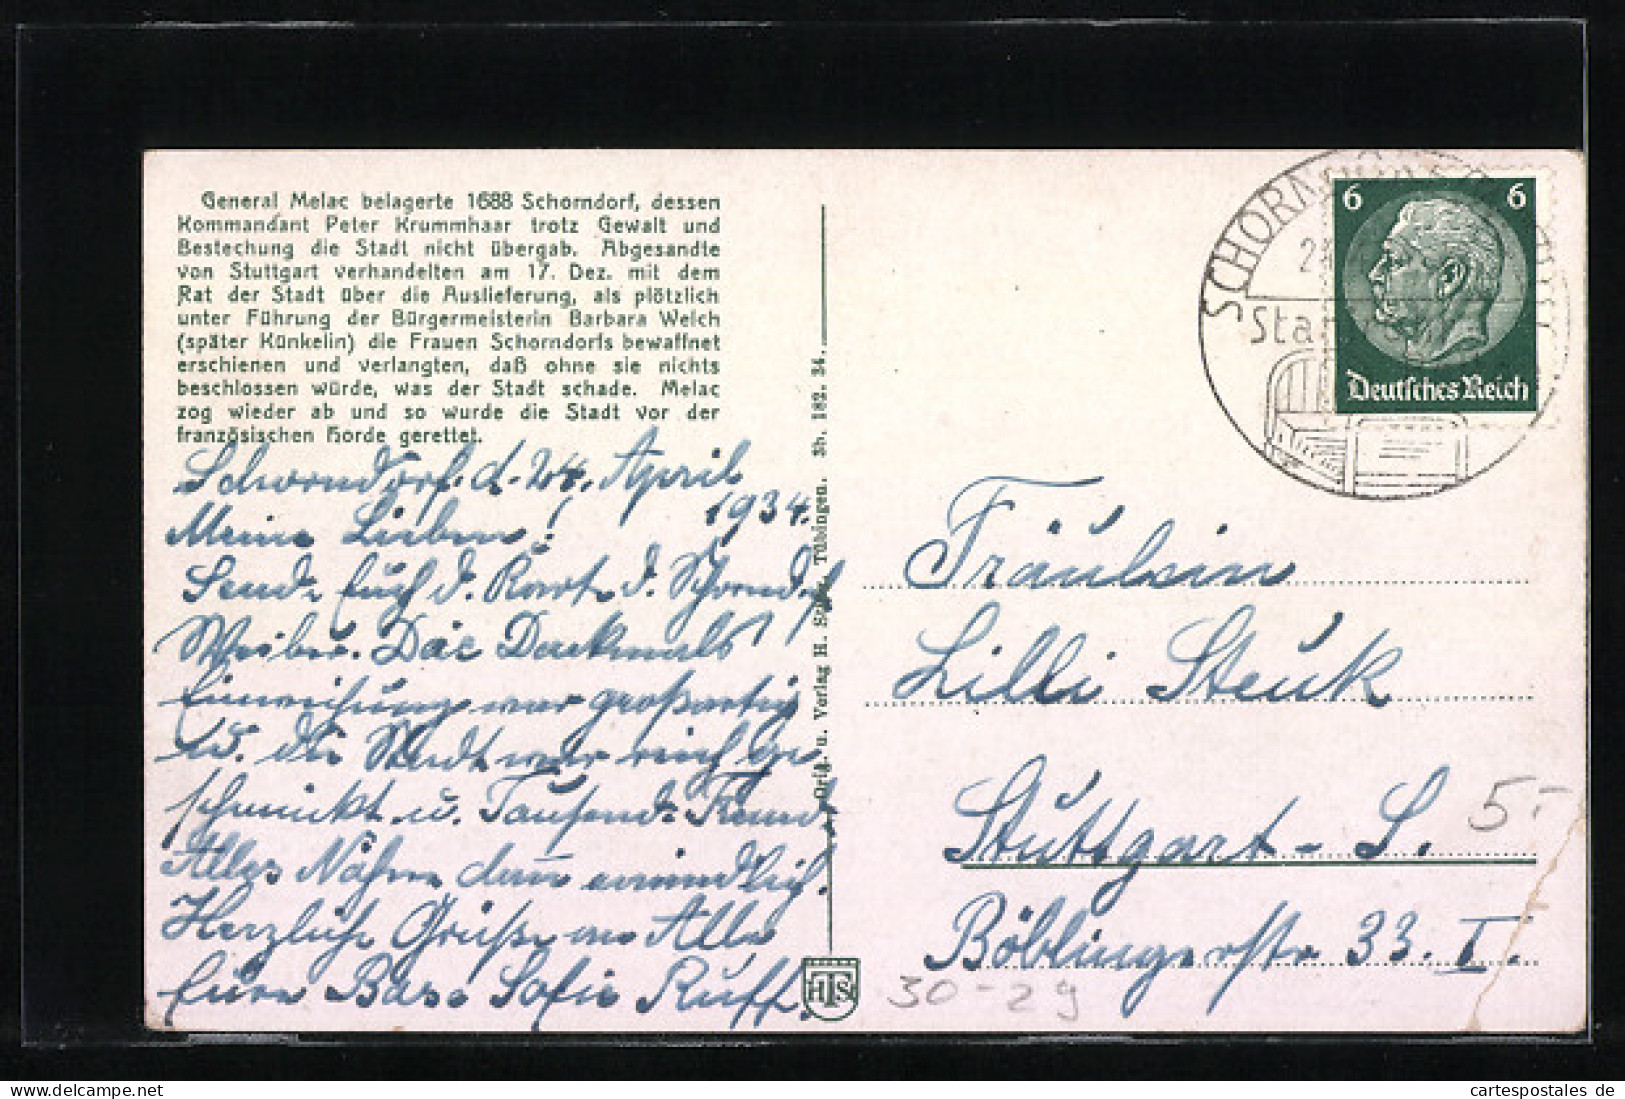 General Melac belagerte 1688 Schorndorf, dessen
Kommandant Peter Krummhaar trotz Gewalt und
Bestechung die Stadt nicht übergab. Abgesandte
von Stuttgart verhandelten am 17. Dez. mit dem
Rat der Stadt über die Auslieferung, als plötzlich
unter Führung der Bürgermeisterin Barbara Welch
(später Künkelin) die Frauen Schorndorfs bewaffnet
erschienen und verlangten, daß ohne sie nichts
beschlossen würde, was der Stadt schade. Melac
zog wieder ab und so wurde die Stadt vor der
französischen Horde gerettet.
Schorndorf. d. 24. April
1934.
Meine Lieben!
Sende Euch d. Karte d. Schornd.
Weiber. Die Denkmals
Einweihung war großartig
u. die Stadt war reich ge-
schmückt u. Tausende Fremde
Alles Nähere dann mündlich.
Herzliche Grüße an Alle
Eure Base Sofie Ruff.
Orig. u. Verlag H. Tübingen. Sb. 182. 34.
HTS
SCHORN
Sta
6 6
Deutsches Reich
Fräulein
Lilli Steuk
Stuttgart-S.
Böblingerstr 33. I.
5.-
30-29
cartespostales de